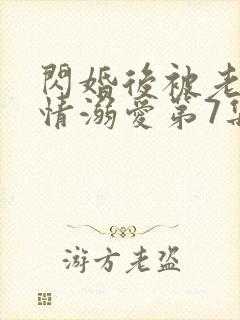 閃婚後被老
情溺愛第7集
游方老盜